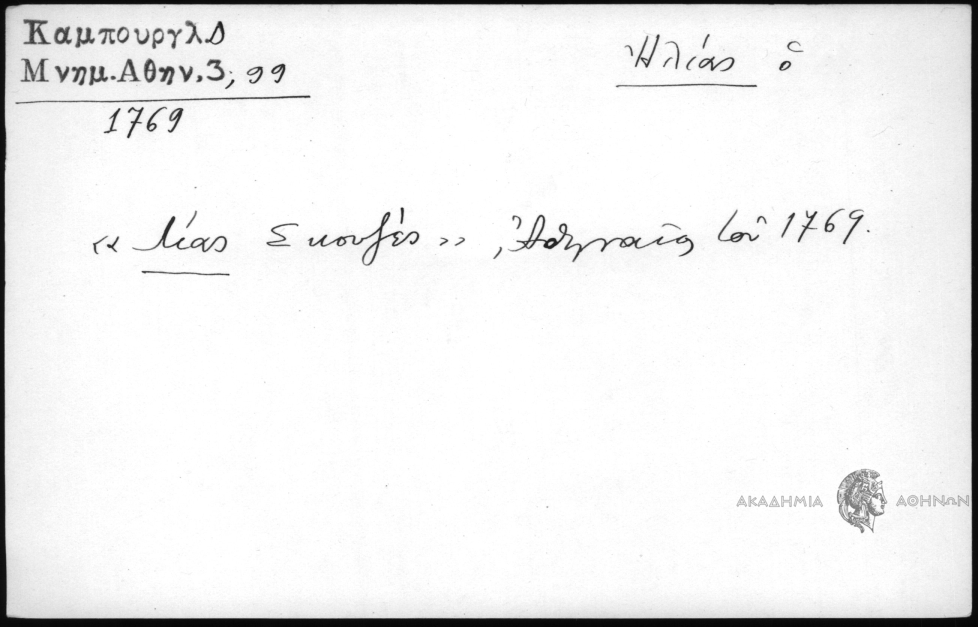 Καμπουργλ.Δ
Μνημ.Αθην.3, 99
1769
Ἠλίας ὁ
«Λίας Σκουζές», Ἀθηναῖος τοῦ 1769.
ΑΚΑΔΗΜΙΑ ΑΘΗΝΩΝ